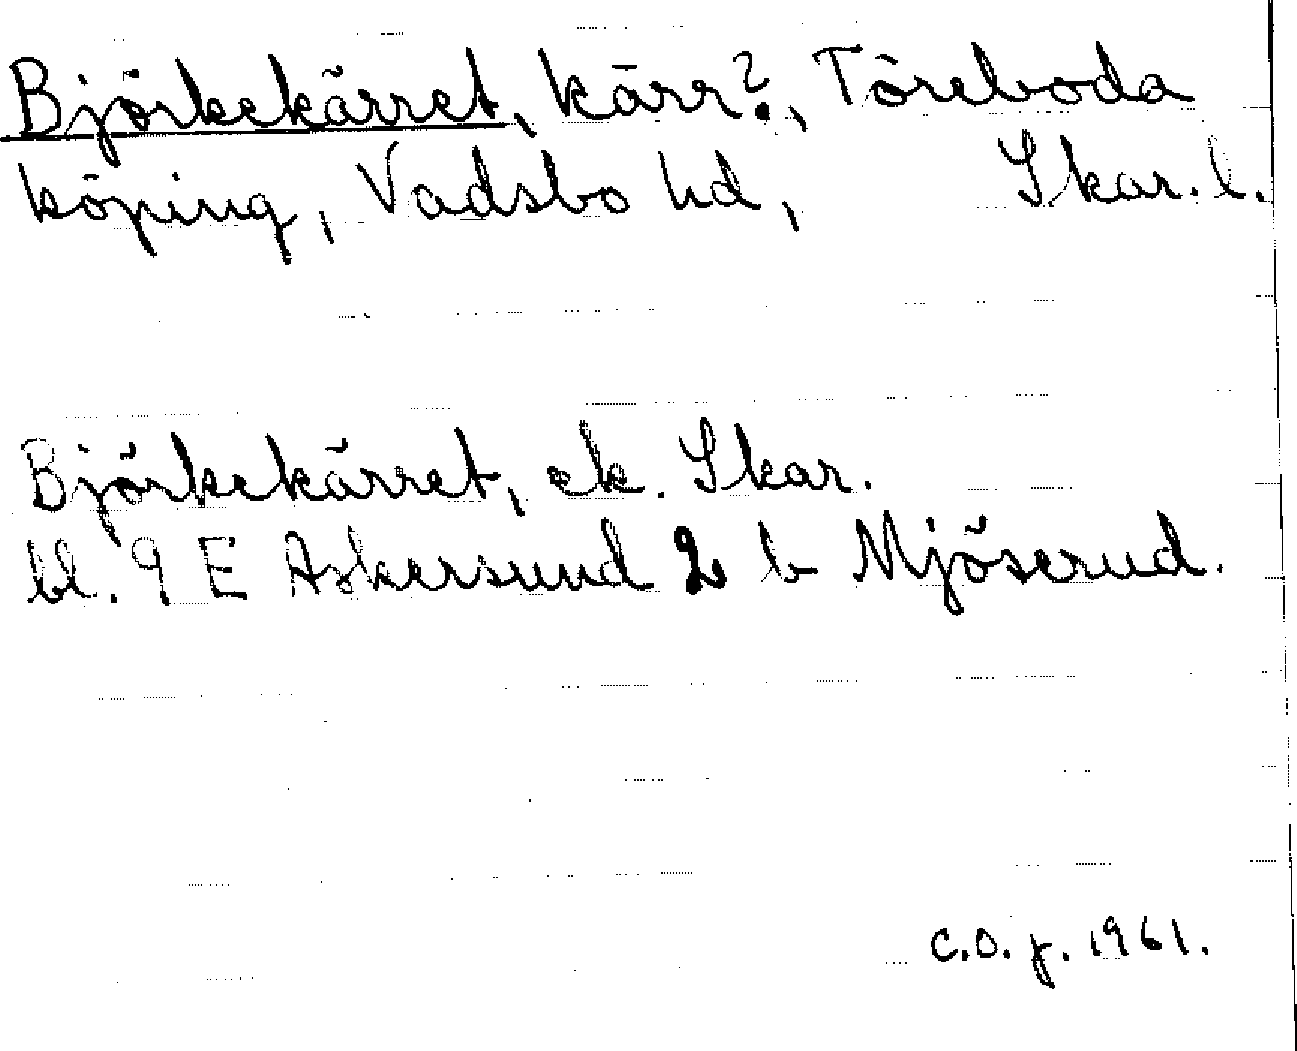 Björkekärret, kärr?, Töreboda
köping, Vadsbo hd, Skar. l.
Björkekärret, ek. Skar.
bl. 9 E Askersund 2 b Mjöserud.
C.O. j. 1961.